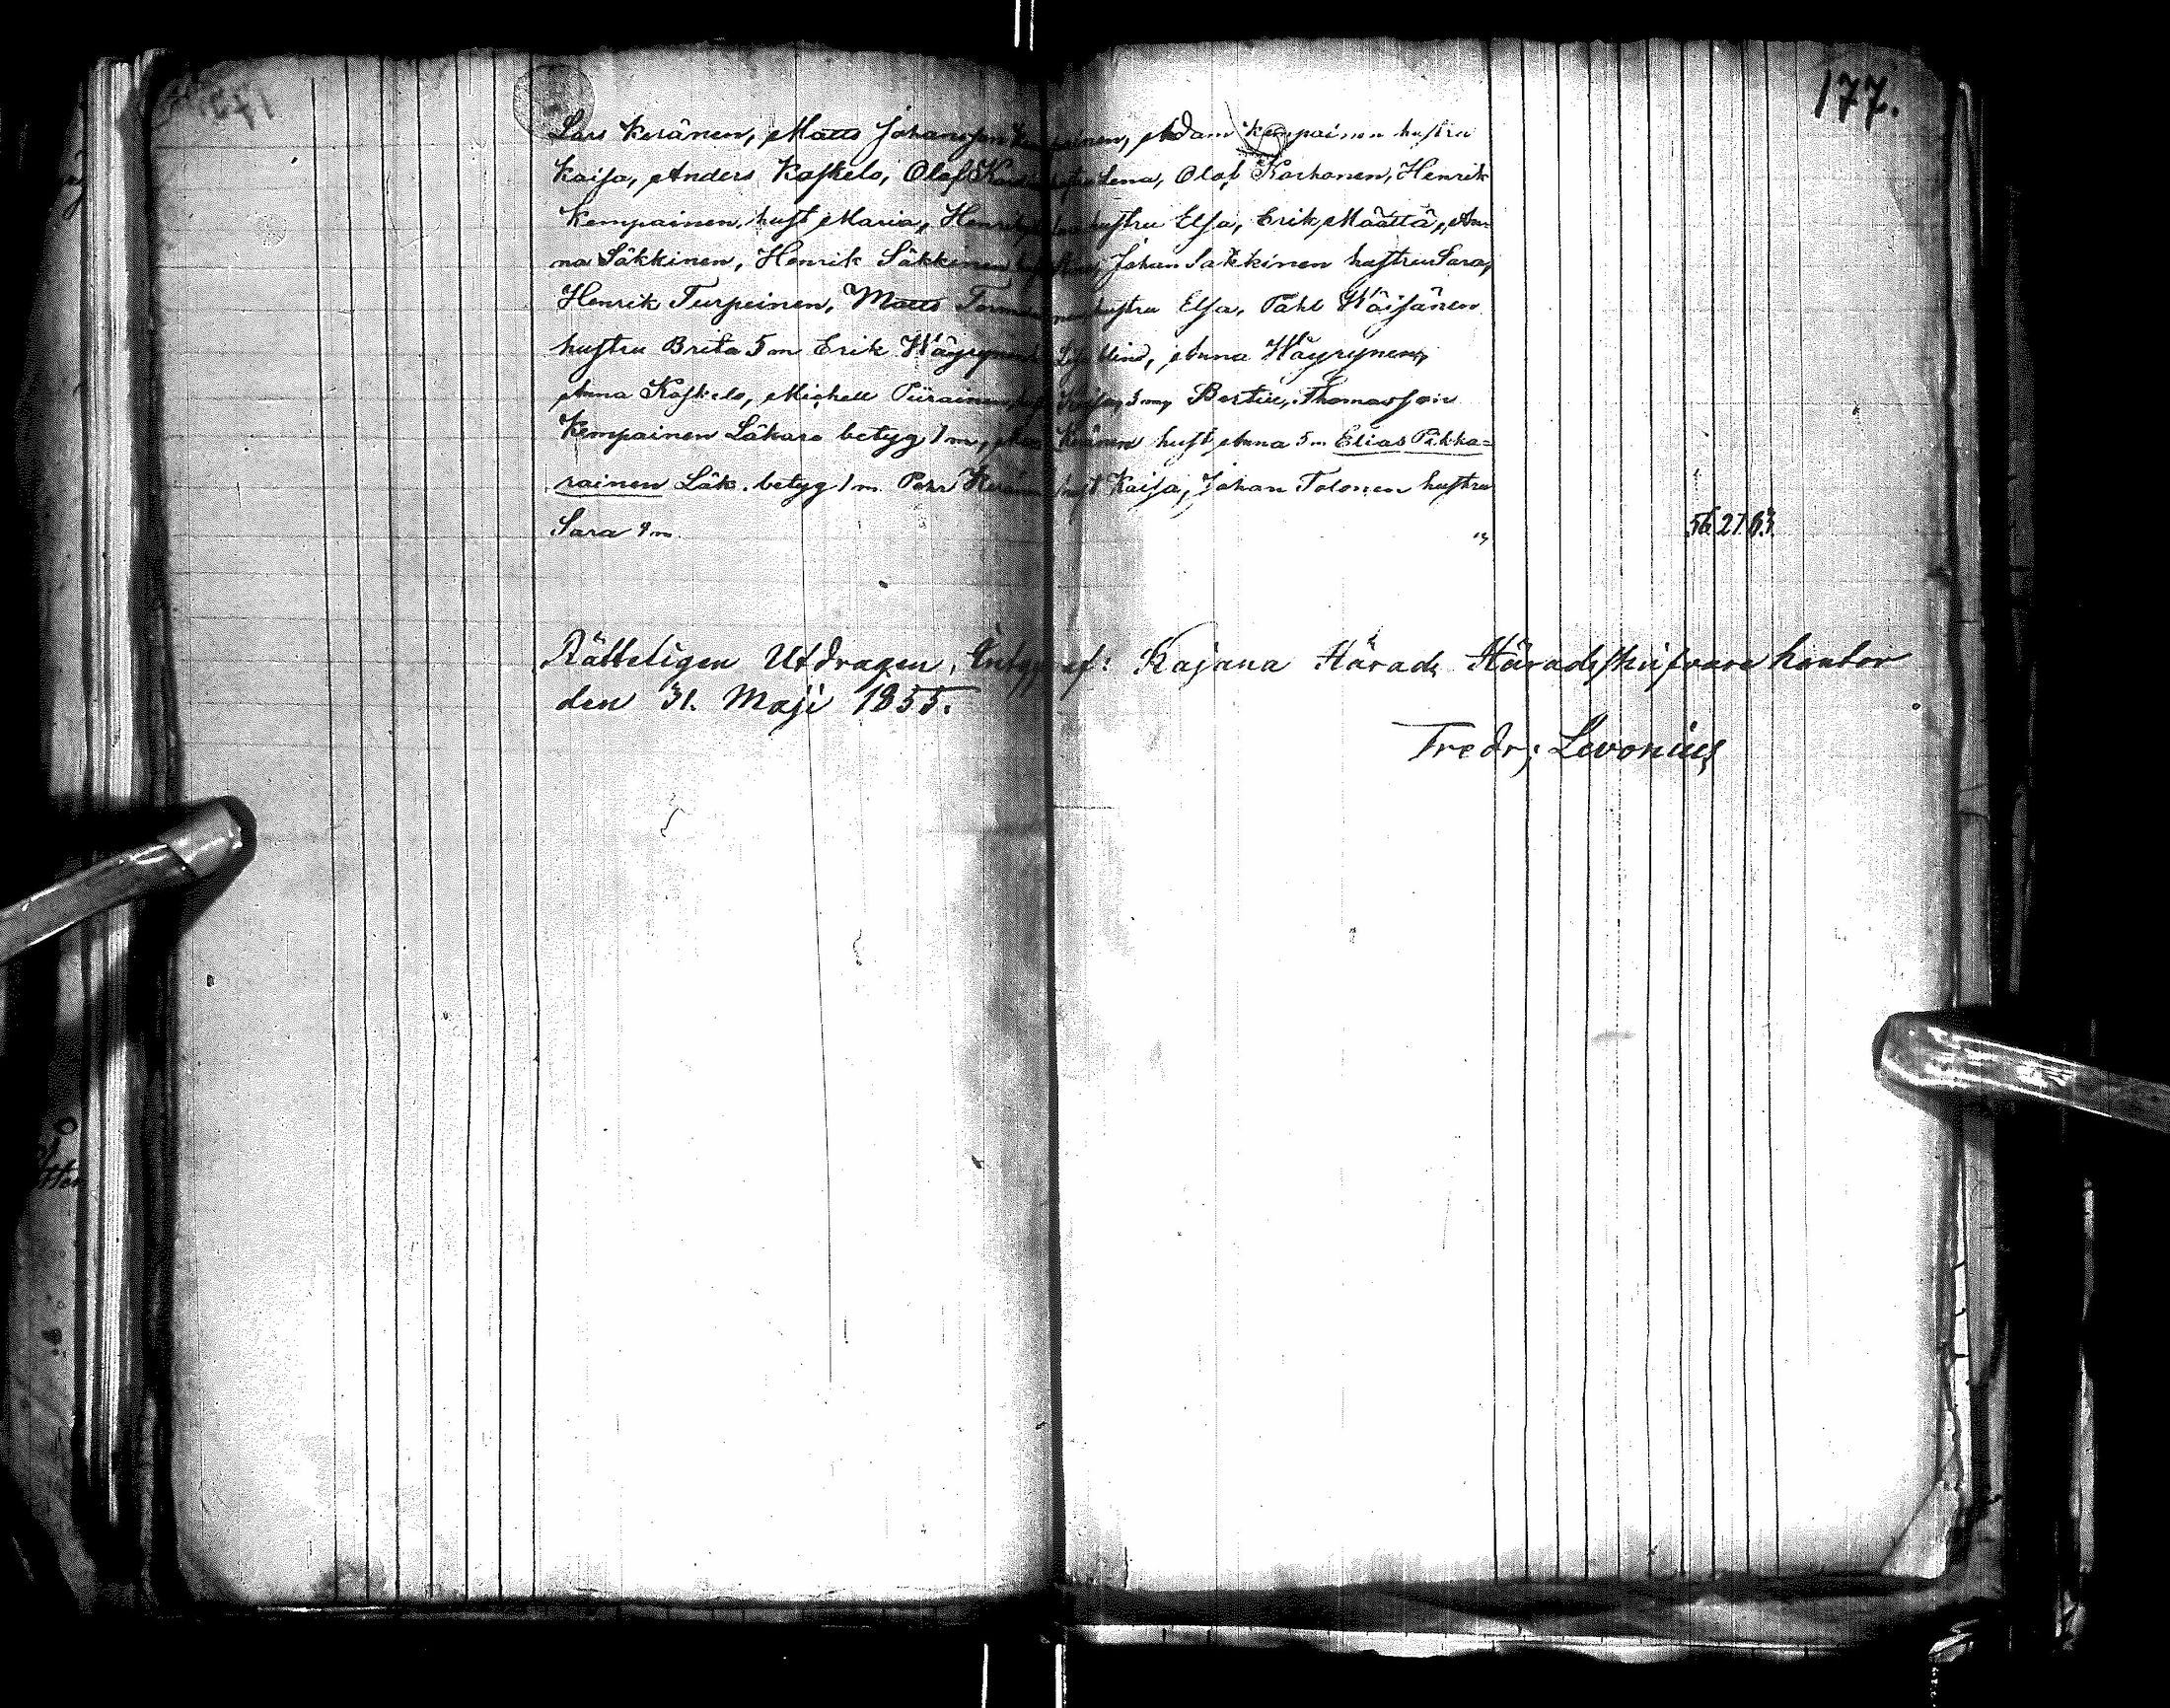 177.
Lars Keränen, Matts Johansson Kempainen, Adam Kempainen hustru
Kaisa, Anders Kaskelo, Olof hustru Lena, Olof Korhonen, Henrik
Kempainen, hust Maria, Henrik hustru Elsa, Erik Määttä, An-
na Säkkinen, Henrik Säkkinen Johan Säkkinen hustru Sara,
Henrik Turpeinen, Matts hustru Elsa, Påhl Wäisänen
hustru Brita 5 m Erik Wäyrynen blind, Anna Wäyrynen,
Anna Kaskelo, Michell Piirainen, hust Kaisa, 3 m, Bertill Thomasson
Kempainen Läkare betyg 1 m, Keränen hust Anna 5 m Elias Pikka=
rainen Läk. betyg 1 m Pehr Keränen hust Kaisa, Johan Tolonen hustru
Sara 9 m " 56 27 63
Rätteligen Utdragen, Intygar af: Kajana Härads Häradsskrifvare kontor
den 31. Maji 1855.
Fredr; Levonius